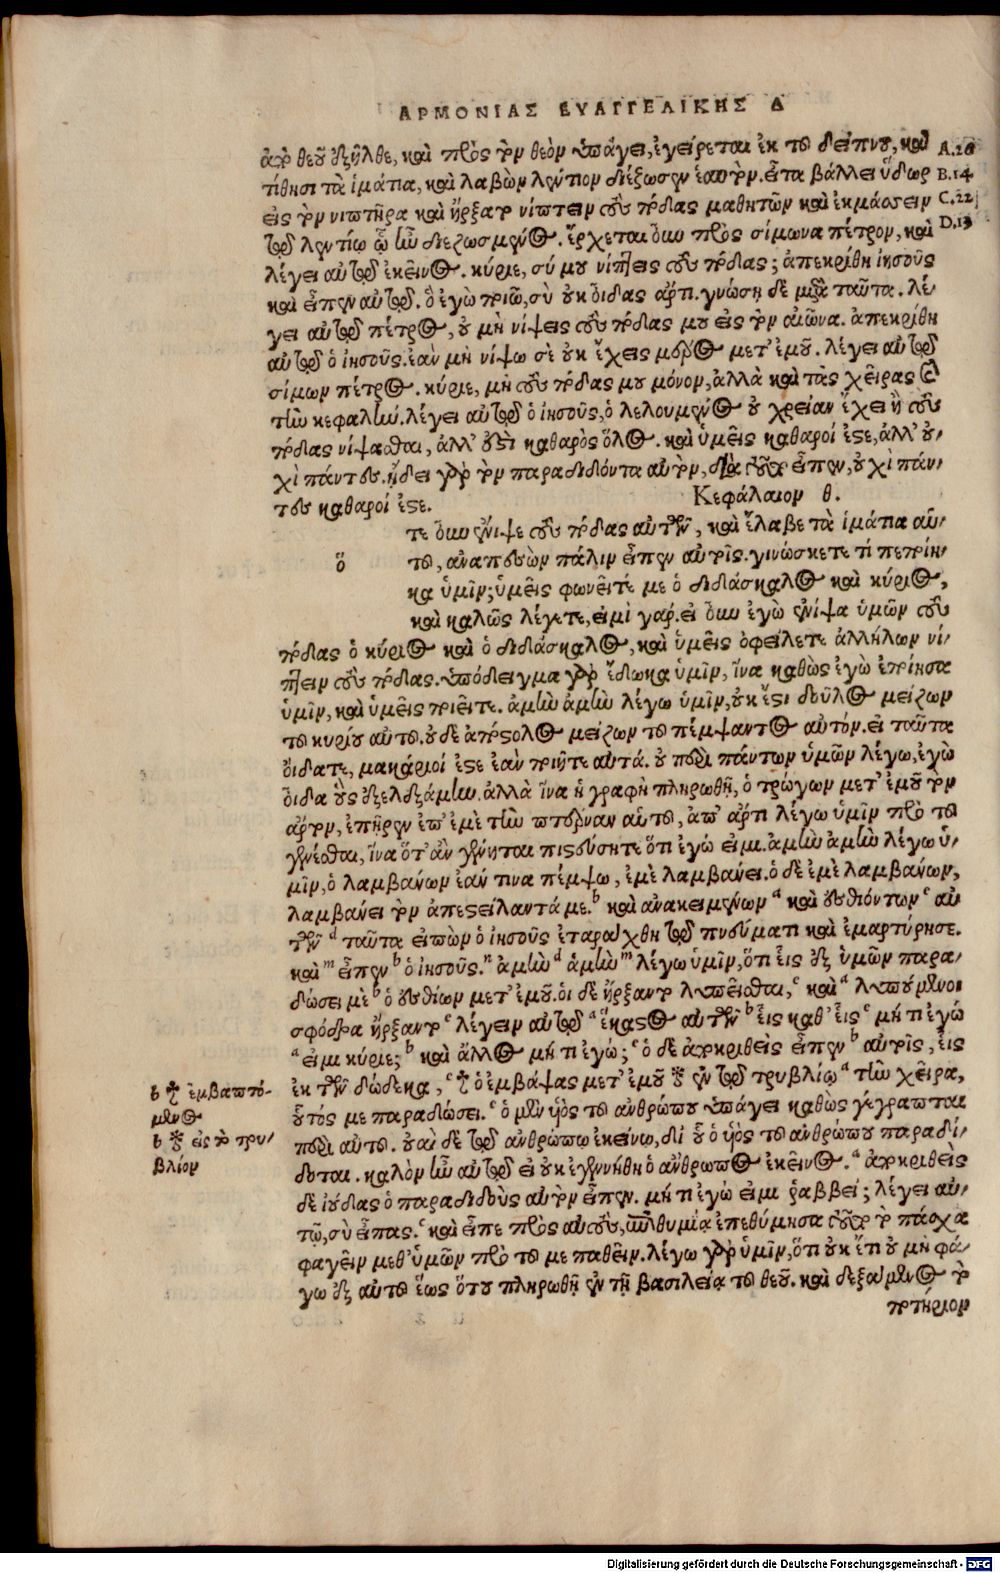 ΑΡΜΟΝΙΑΣ ΕΥΑΓΓΕΛΙΚΗΣ Δ
ἀπὸ θεοῦ ἐξῆλθε, καὶ πρὸς τὸν θεὸν ὑπάγει, ἐγείρεται ἐκ τοῦ δείπνου, καὶ
A.26
τίθησι τὰ ἱμάτια, καὶ λαβὼν λέντιον διέζωσεν ἑαυτὸν. εἶτα βάλλει ὕδωρ
B.14
εἰς τὸν νιπτῆρα καὶ ἤρξατο νίπτειν τοὺς πόδας μαθητῶν καὶ ἐκμάσσειν
C.22
τῷ λεντίῳ ᾧ ἦν διεζωσμένος. ἔρχεται οὖν πρὸς σίμωνα πέτρον, καὶ
D.13
λέγει αὐτῷ ἐκεῖνος. κύριε, σύ μου νίπτεις τοὺς πόδας; ἀπεκρίθη ἰησοῦς
καὶ εἶπεν αὐτῷ. ὃ ἐγὼ ποιῶ, σὺ οὐκ οἶδας ἄρτι. γνώσῃ δὲ μετὰ ταῦτα. λέ-
γει αὐτῷ πέτρος, οὐ μὴ νίψεις τοὺς πόδας μου εἰς τὸν αἰῶνα. ἀπεκρίθη
αὐτῷ ὁ ἰησοῦς. ἐὰν μὴ νίψω σὲ οὐκ ἔχεις μέρος μετ' ἐμοῦ. λέγει αὐτῷ
σίμων πέτρος. κύριε, μὴ τοὺς πόδας μου μόνον, ἀλλὰ καὶ τὰς χεῖρας καὶ
τὴν κεφαλήν. λέγει αὐτῷ ὁ ἰησοῦς, ὁ λελουμένος οὐ χρείαν ἔχει ἢ τοὺς
πόδας νίψασθαι, ἀλλ' ἔστι καθαρὸς ὅλος. καὶ ὑμεῖς καθαροί ἐστε, ἀλλ' οὐ-
χὶ πάντες. ᾔδει γὰρ τὸν παραδιδόντα αὐτὸν, διὰ τοῦτο εἶπεν, οὐχὶ πάν-
τες καθαροί ἐστε.
Κεφάλαιον θ.
ὅ
τε οὖν ἔνιψε τοὺς πόδας αὐτῶν, καὶ ἔλαβε τὰ ἱμάτια αὑ-
τοῦ, ἀναπεσὼν πάλιν εἶπεν αὐτοῖς. γινώσκετε τί πεποίη-
κα ὑμῖν; ὑμεῖς φωνεῖτέ με ὁ διδάσκαλος καὶ κύριος,
καὶ καλῶς λέγετε, εἰμὶ γαρ. εἰ οὖν ἐγὼ ἔνιψα ὑμῶν τοὺς
πόδας ὁ κύριος καὶ ὁ διδάσκαλος, καὶ ὑμεῖς ὀφείλετε ἀλλήλων νί-
πτειν τοὺς πόδας. ὑπόδειγμα γὰρ ἔδωκα ὑμῖν, ἵνα καθὼς ἐγὼ ἐποίησα
ὑμῖν, καὶ ὑμεῖς ποιεῖτε. ἀμὴν ἀμὴν λέγω ὑμῖν, οὐκ ἔστι δοῦλος μείζων
τοῦ κυρίου αὐτοῦ. οὐδὲ ἀπόστολος μείζων τοῦ πέμψαντος αὐτόν. εἰ ταῦτα
οἴδατε, μακάριοί ἐστε ἐὰν ποιῆτε αὐτά. οὐ περὶ πάντων ὑμῶν λέγω, ἐγὼ
οἶδα οὓς ἐξελεξάμην. ἀλλὰ ἵνα ἡ γραφὴ πληρωθῇ, ὁ τρώγων μετ' ἐμοῦ τὸν
ἄρτον, ἐπῆρεν ἐπ' ἐμὲ τὴν πτέρναν αὑτοῦ, ἀπ' ἄρτι λέγω ὑμῖν πρὸ τοῦ
γενέσθαι, ἵνα ὅτ' ἂν γένηται πιστεύσητε ὅτι ἐγώ εἰμι. ἀμὴν ἀμὴν λέγω ὑ-
μῖν, ὁ λαμβάνων ἐάν τινα πέμψω, ἐμὲ λαμβάνει. ὁ δὲ ἐμὲ λαμβάνων,
λαμβάνει τὸν ἀπεστείλαντά με. b καὶ ἀνακειμένων a καὶ ἐσθιόντων c αὐ
τῶν d ταῦτα εἰπὼν ὁ ἰησοῦς ἐταράχθη τῷ πνεύματι καὶ ἐμαρτύρησε.
καὶ m εἶπεν b ὁ ἰησοῦς. n ἀμὴν d ἀμὴν m λέγω ὑμῖν, ὅτι εἷς ἐξ ὑμῶν παρα-
δώσει μὲ b ὁ ἐσθίων μετ' ἐμοῦ. οἱ δὲ ἤρξαντο λυπεῖσθαι, c καὶ a λυπούμενοι
σφόδρα ἤρξαντο c λέγειν αὐτῷ a ἕκαστος αὐτῶν b εἷς καθ' εἷς c μή τι ἐγώ
a εἰμι κύριε; b καὶ ἄλλος μή τι ἐγώ; c ὁ δὲ ἀποκριθεὶς εἶπεν b αὐτοῖς, εἷς
ἐκ τῶν δώδεκα, c ὁ ἐμβάψας μετ' ἐμοῦ ἐν τῷ τρυβλίῳ a τὴν χεῖρα,
b ἐμβαπτό-
μενος
οὗτός με παραδώσει. c ὁ μὲν υἱὸς τοῦ ἀνθρώπου ὑπάγει καθὼς γέγραπται
b εἰς τὸ τρυ-
βλίον
περὶ αὐτοῦ. οὐαὶ δὲ τῷ ἀνθρώπῳ ἐκείνῳ, δι' οὗ ὁ υἱὸς τοῦ ἀνθρώπου παραδί-
δοται. καλὸν ἦν αὐτῷ εἰ οὐκ ἐγεννήθη ὁ ἄνθρωπος ἐκεῖνος. a ἀποκριθεὶς
δὲ ἰούδας ὁ παραδιδοὺς αὐτὸν εἶπεν. μή τι ἐγώ εἰμι ῥαββεί; λέγει αὐ-
τῷ, σὺ εἶπας. c καὶ εἶπε πρὸς αὐτοὺς, ἐπιθυμίᾳ ἐπεθύμησα τοῦτο τὸ πάσχα
φαγεῖν μεθ' ὑμῶν πρὸ τοῦ με παθεῖν. λέγω γὰρ ὑμῖν, ὅτι οὐκ ἔτι οὐ μὴ φά-
γω ἐξ αὐτοῦ ἕως ὅτου πληρωθῇ ἐν τῇ βασιλείᾳ τοῦ θεοῦ. καὶ δεξάμενος τὸ
ποτήριον
Digitalisierung gefördert durch die Deutsche Forschungsgemeinschaft - DFG